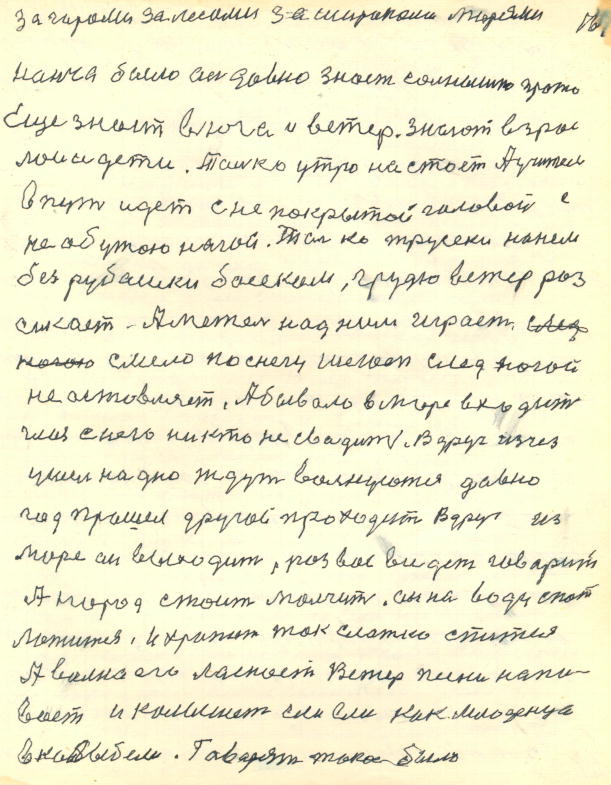 За гарами за лесами за широкоми морями 16
нанча было ли давно знает солнышко про то
Еще знает вюга и ветер. знают взрос
лои и дети. Толко утро настоет Аучител
в пути идет с не покрытой галовой с
не обутою нагой. Толко трусеки нанем
без рубашки босеком, грудю ветер роз
сикает - Аметел над ним играет. след
ногою смело поснегу шегоет след ногой
не остовляет. Абывало вморе входит
глоз снего никто не сводит. Вдруг изчез
ушел надно ждут волнуются давно
год прошел другой проходит Вдруг из
море он выходит, роз вас ведет говорит
А народ стоит молчит. он на воду спат
ложится. и храпит так слатко спится
А волна его ласкоет Ветер песни напи-
вает и колышет слвсли как младенца
в колыбели. Гаварят тако было